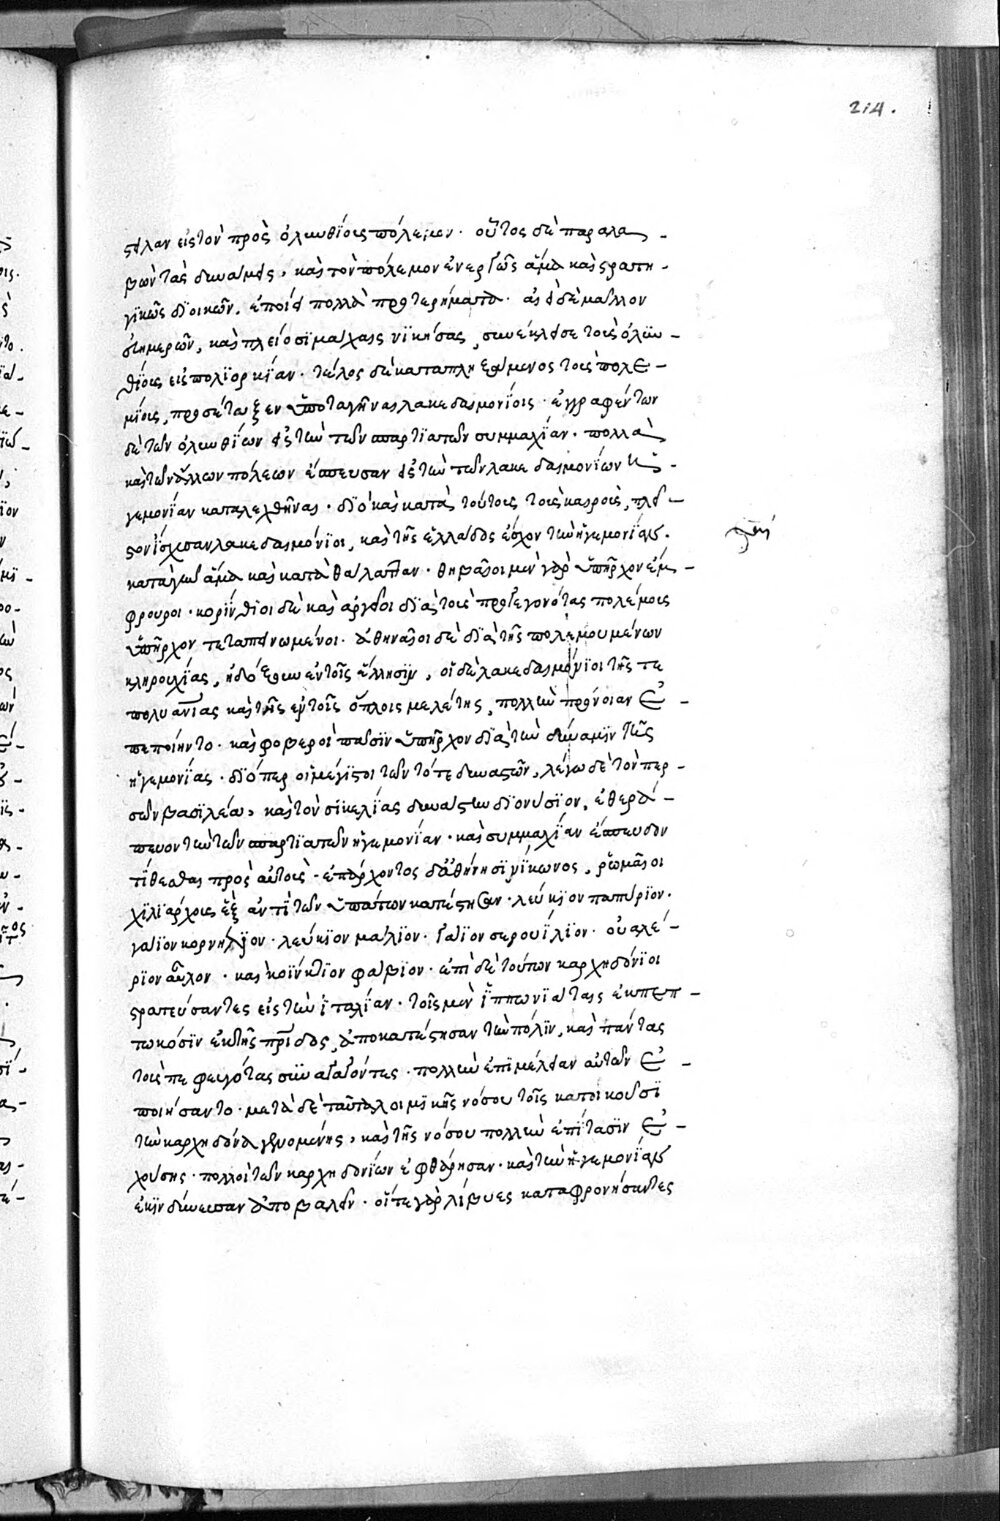 214.
στειλαν εἰς τὸν πρὸς ὀλυνθίους πόλεμον· οὗτος δὲ παραλα-
βὼν τὰς δυνάμεις, καὶ τὸν πόλεμον ἐνεργῶς ἅμα καὶ στρατη-
γικῶς διοικῶν, ἐποίει πολλὰ προτερήματα· ἀεὶ δὲ μᾶλλον
εὐημερῶν, καὶ πλείοσι μάχαις νικήσας, συνέκλεισε τοὺς ὀλυν-
θίους εἰς πολιορκίαν· τέλος δὲ καταπληξάμενος τοὺς πολε-
μίους, προσέταξεν ὑποταγῆναι λακεδαιμονίοις· ἐγγραφέντων
δὲ τῶν ὀλυνθίων εἰς τὴν τῶν σπαρτιατῶν συμμαχίαν· πολλαὶ
καὶ τῶν ἄλλων πόλεων ἔσπευσαν εἰς τὴν τῶν λακεδαιμονίων ἡ-
γεμονίαν καταλεχθῆναι· διὸ καὶ κατὰ τούτους τοὺς καιροὺς, πλεῖ-
στον ἴσχυσαν λακεδαιμόνιοι, καὶ τῆς ἑλλάδος ἔσχον τὴν ἡγεμονίαν
κατὰ γῆν ἅμα καὶ κατὰ θάλατταν· θηβαῖοι μὲν γὰρ ὑπῆρχον ἔμ-
φρουροι· κορίνθιοι δὲ καὶ ἀργεῖοι διὰ τοὺς προγεγονότας πολέμους
ὑπῆρχον τεταπεινωμένοι· ἀθηναῖοι δὲ διὰ τῆς πολεμουμένων
κληρουχίας, ἠδόξουν ἐν τοῖς ἕλλησιν, οἱ δὲ λακεδαιμόνιοι τῆς τε
πολυανίας καὶ τῆς ἐν τοῖς ὅπλοις μελέτης, πολλὴν πρόνοιαν ἐ-
πεποίηντο· καὶ φοβεροὶ πᾶσιν ὑπῆρχον διὰ τὴν δύναμιν τῆς
ἡγεμονίας· διόπερ οἱ μέγιστοι τῶν τότε δυναστῶν, λέγω δὲ τὸν περ-
σῶν βασιλέα, καὶ τὸν σικελίας δυνάστην διονύσιον, ἐθερά-
πευον τὴν τῶν σπαρτιατῶν ἡγεμονίαν· καὶ συμμαχίαν ἔσπευδον
τίθεσθαι πρὸς αὐτούς· ἐπ' ἄρχοντος δ' ἀθήνησι νίκωνος, ῥωμαῖοι
χιλιάρχους ἓξ ἀντὶ τῶν ὑπάτων κατέστησαν· λεύκιον παπίριον·
γάιον κορνήλιον· λεύκιον μάλιον· γάιον σερουίλιον· οὐαλέ-
ριον αὖλον· καὶ κοίνκτιον φάβιον· ἐπὶ δὲ τούτων καρχηδόνιοι
στρατεύσαντες εἰς τὴν ἰταλίαν· τοῖς μὲν ἱππωνιάταις ἐκπεπ-
τωκόσιν ἐκ τῆς πρίδος, ἀποκατέστησαν τὴν πόλιν, καὶ πάντας
τοὺς πεφευγότας συναγαγόντες· πολλὴν ἐπιμέλειαν αὐτῶν ἐ-
ποιήσαντο· μετὰ δὲ ταῦτα λοιμικῆς νόσου τοῖς κατοικοῦσι
τὴν καρχηδόνα γενομένης, καὶ τῆς νόσου πολλὴν ἐπίτασιν ἐ-
χούσης· πολλοὶ τῶν καρχηδονίων ἐφθάρησαν· καὶ τὴν ἡγεμονίαν
ἐκινδύνευσαν ἀποβαλεῖν· οἵ τε γὰρ λίβυες καταφρονήσαντες